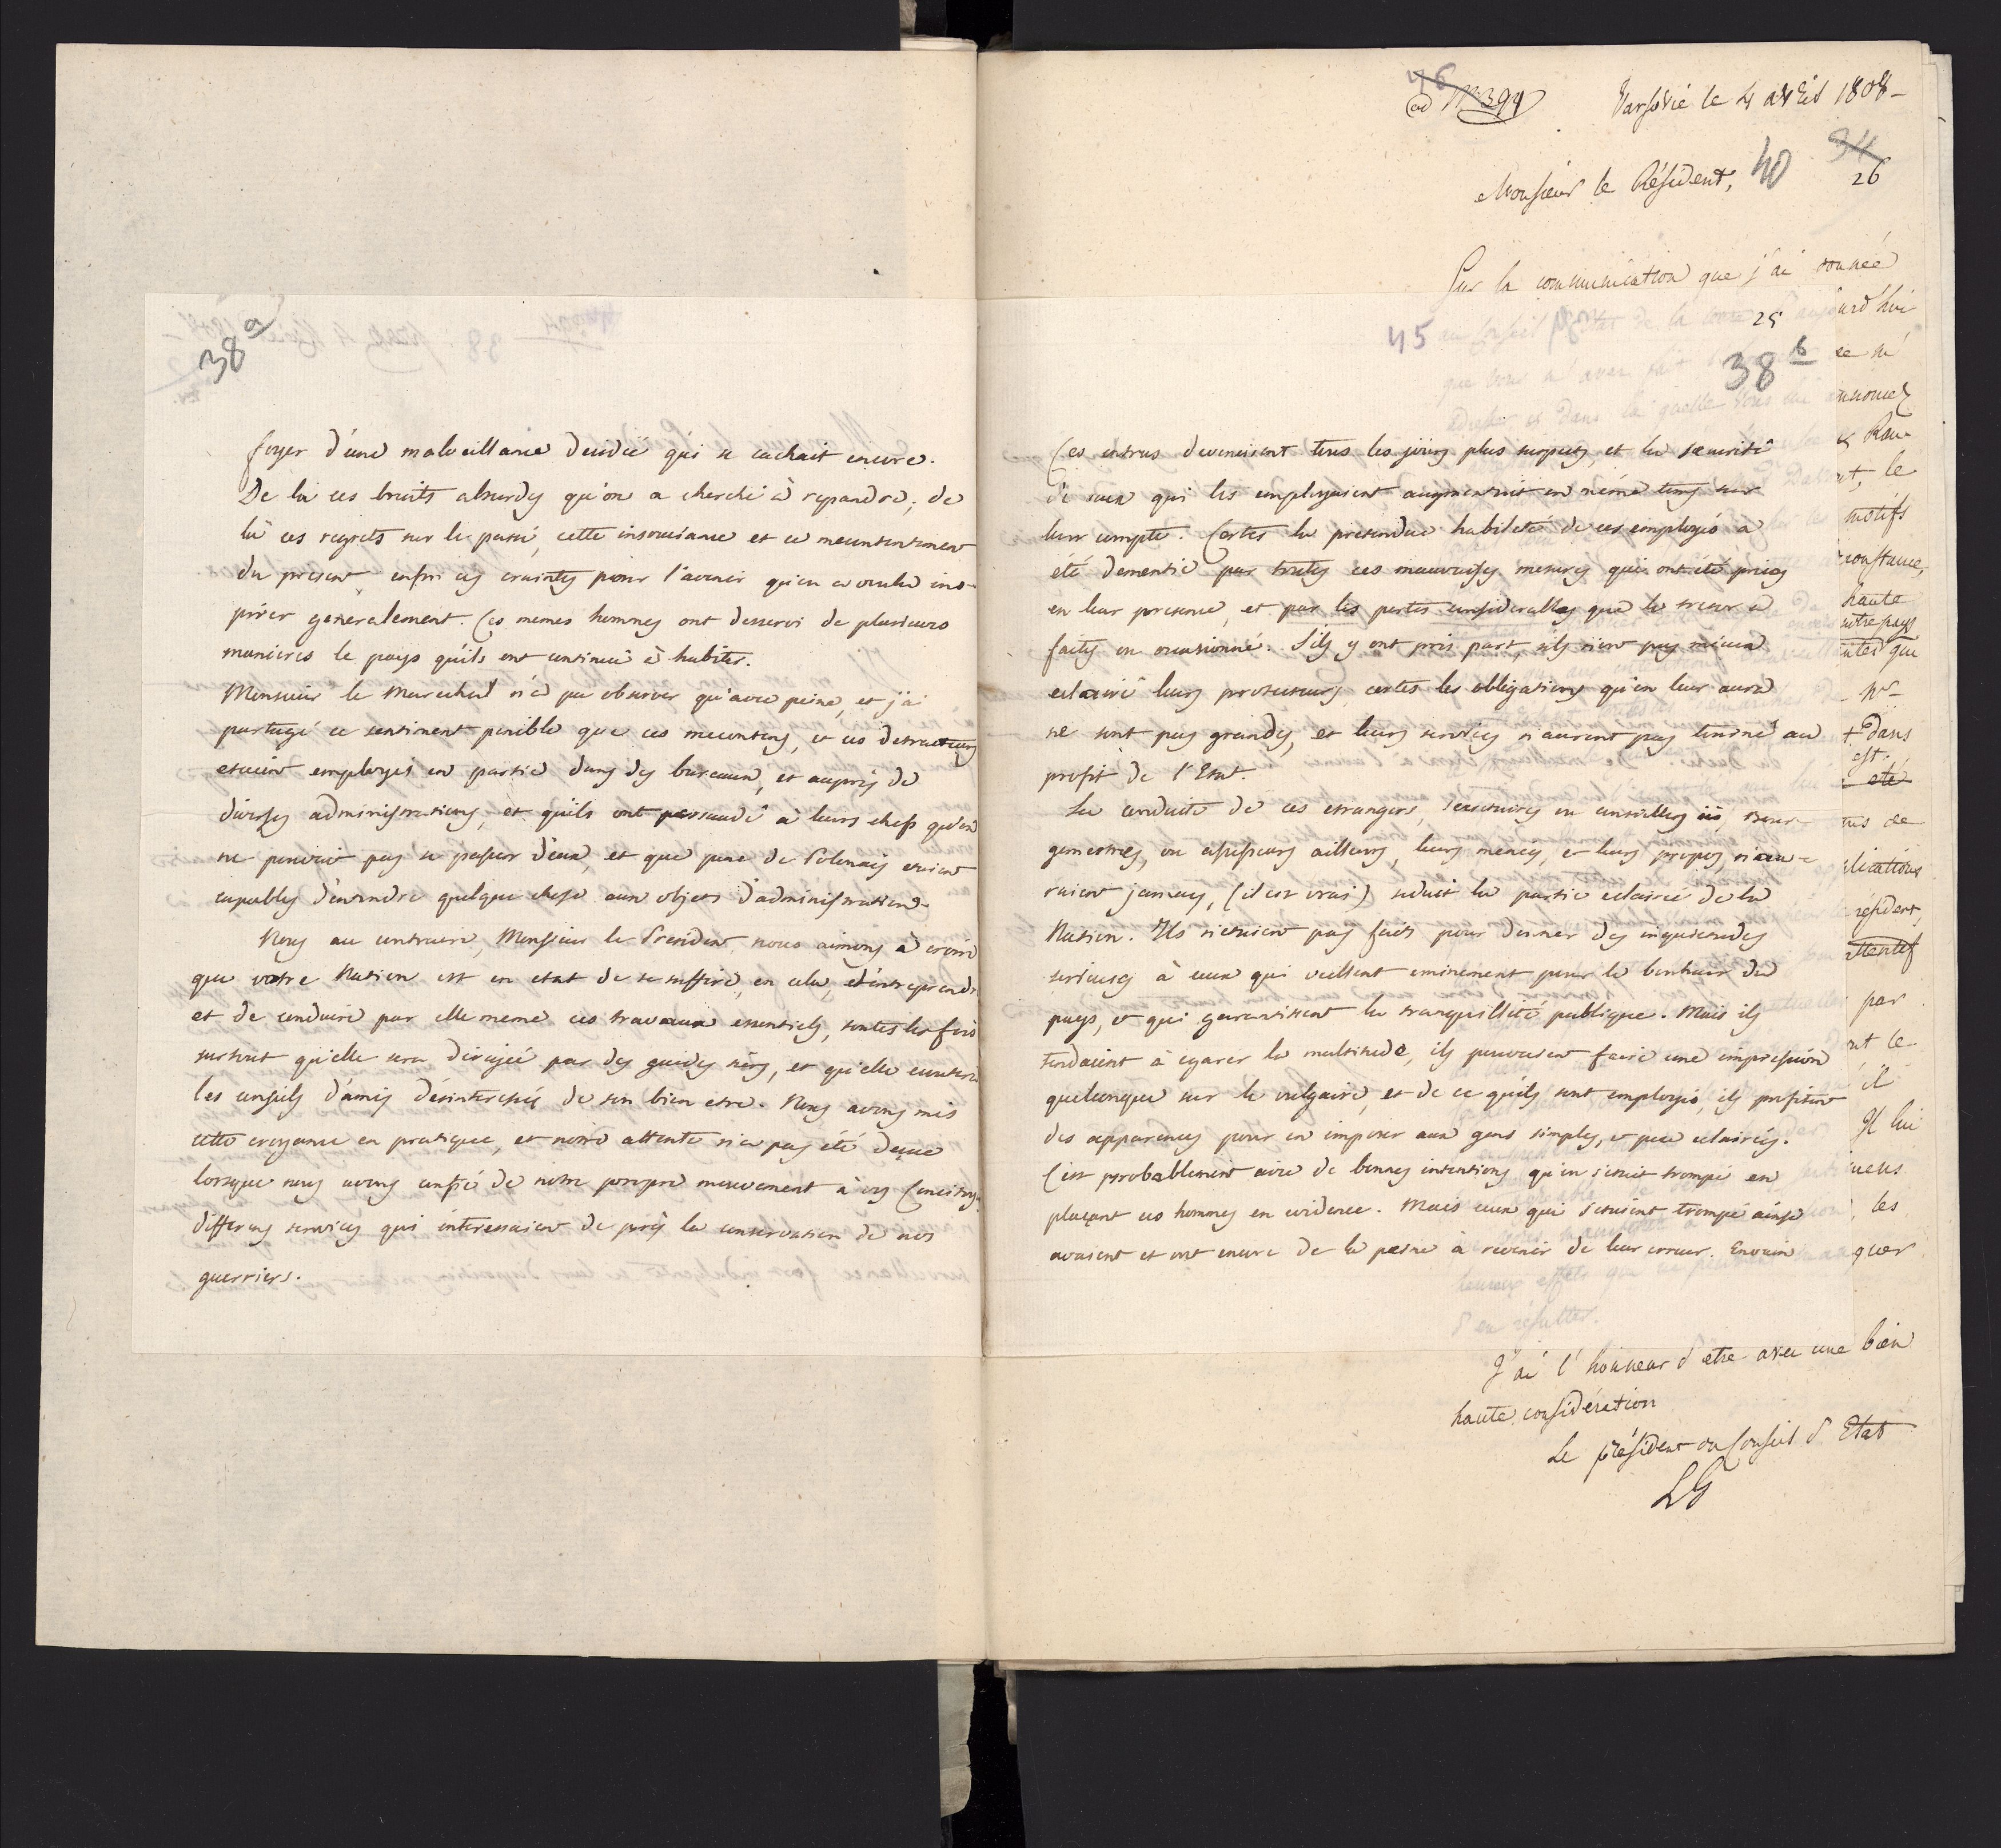 38 a
foyer d'une malveillance decidée qui se cachait encore.
De la ces bruits absurdes qu'on a cherché à repandre; de
là ces regrets sur le passé, cette insouciance et ce mecontentement
du present, enfin ces craintes pour l'avenir qu'on a voulu ins-
pirer generalement. Ces memes hommes ont desservi de plusieurs
manieres le pays qu'ils ont continué à habiter.
Monsieur le Marechal n'a pu observer qu'avec peine, et j'ai
partagé ce sentiment penible que ces mecontens, et ces detracteurs
etaient employés en partie dans des bureaux, et aupres de
diverses administrations, et qu'ils ont persuadé à leurs chefs qu'on
ne pouvait pas se passer d'eux, et que peu de Polonais etaient
capables d'entendre quelque chose aux objets d'administration.
Nous au contraire, Monsieur le President, nous aimons à croire
que votre Nation est en etat de se suffire, en cela, d'entreprendre
et de conduire par elle meme ces travaux essentiels, toutes les fois
surtout qu'elle sera dirigée par des guides sûrs, et qu'elle ecoutera
les conseils d'amis désinteressés de son bien etre. Nous avons mis
cette croyance en pratique, et notre attente n'a pas été deçue
lorsque nous avons confié de notre propre mouvement à vos Concitoyens
differens services qui interessaient de près la conservation de nos
guerriers.
46
ad N 394
Varsovie le 4 avril 1808-
Monsieur le Résident,
40
34
26
Sur la communication que j'ai donnée
45 au Conseil d'Etat de la 25 aujourd'hui
que vous m'avez fait
38 b
Ces intrus devenaient tous les jours plus suspects, et la securité
de ceux qui les employaient augmentait en même tems sur
leur compte. Certes la pretendue habileté de ces employés a
été dementie par toutes ces mauvaises mesures qui ont été prises
en leur presence, et par les pertes considerables que le tresor a
faites en occasionné. S'ils y ont pris part, s'ils n'ont pas mieux
eclairé leurs protecteurs, certes les obligations qu'on leur aura
ne sont pas grandes, et leurs services n'auront pas tourné au
profit de l'Etat.
La conduite de ces etrangers, secretaires ou conseillers ici, bour-
gemestres, ou assesseurs ailleurs, leurs menées, et leurs propos, n'au-
raient jamais, (il est vrai) seduit la partie eclairée de la
Nation. Ils n'etaient pas faits pour donner des inquietudes
serieuses à ceux qui veillent eminement pour le bonheur du
pays, et qui garantissent la tranquillité publique. Mais ils
tendaient à egarer la multitude, ils pouvaient faire une impression
quelconque sur le vulgaire, et de ce qu'ils sont employés, ils profitent
des apparences pour en imposer aux gens simples, et peu eclairés.
C'est probablement avec de bonnes intentions qu'on s'etait trompé en
plaçant ces hommes en evidence. Mais ceux qui s'etaient trompé ainsi
avaient et ont encore de la peine à revenir de leur erreur. Envain
motifs
haute
notre pays
+ dans
est.
eté
par
il
Il lui
les
quer
d'en résulter.
J'ai l'honneur d'etre avec une bien
haute considération
Le président du Conseil d'Etat
LG